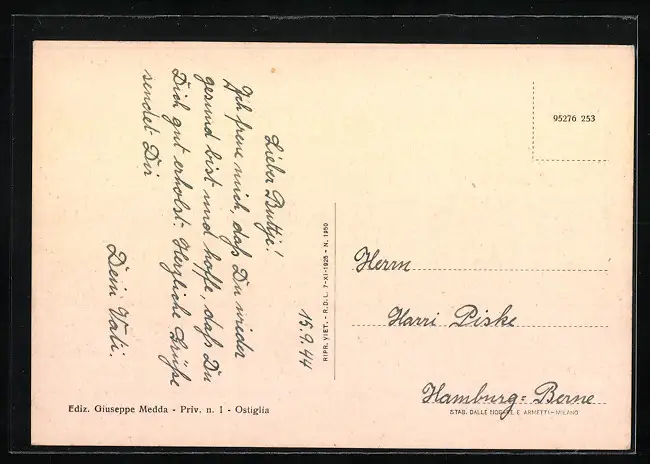 15.9.44
Lieber Buttje!
Ich freue mich, daß Du wieder
gesund bist und hoffe, daß Du
Dich gut erholst. Herzliche Grüße
sendet Dir
Dein Vati.
RIPR. VIET. - R.D.L. 7-XI-1925 - N. 1950
95276 253
Herrn
Harri Piske
Hamburg = Berne
Ediz. Giuseppe Medda - Priv. n. 1 - Ostiglia
STAB. DALLE NOGARE E ARMETTI - MILANO